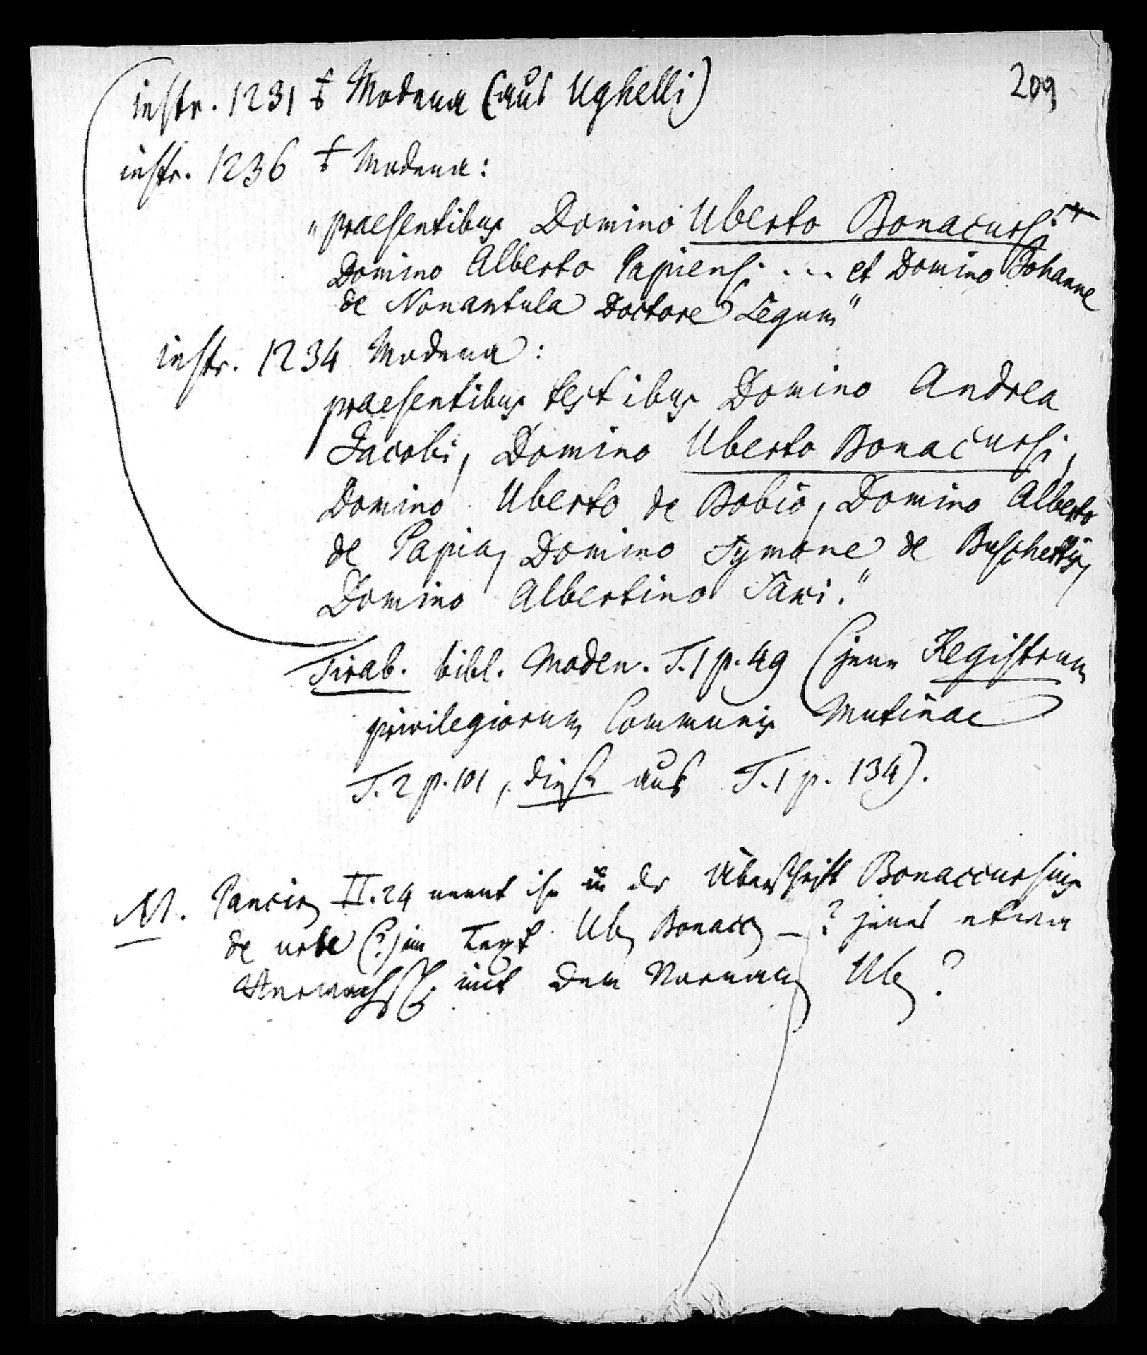 209
instr. 1231 Modena (aus Ughelli)
instr. 1236 Modena:
„praesentibus Domino Uberto Bonacursi
Domino Alberto Papiensi ... et Domino Johanne
de Nonantula Doctore Legum“
instr. 1234 Modena:
praesentibus testibus Domino Andrea
Jacobi, Domino Uberto Bonacursi,
Domino Uberto de Bobio, Domino Alberto
de Papia, Domino Symone de
Domino Albertino “
Tirab. bibl. Moden. T.1 p.49 (jenes Registrum
privilegiorum Communis Mutinae
T.2 p.101, dieses aus T.1 p. 134).
Pancir. II.24 nennt ihn in der Überschrift Bonaccursius
de urbe (?) im Text Ub. Bonacc. – ? jenes etwa
mit dem Vornamen Ub.?